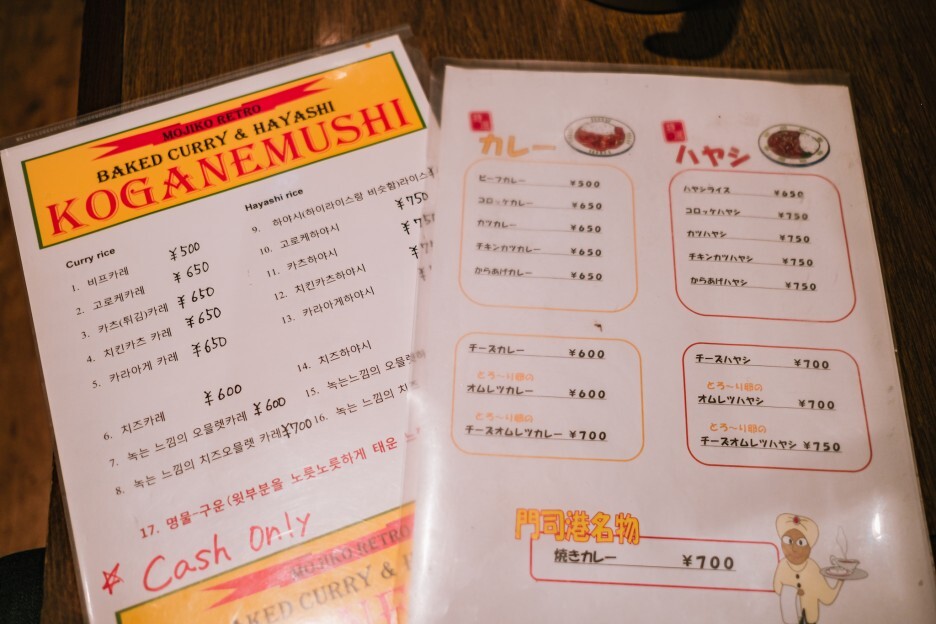 MOJIKO RETRO
BAKED CURRY & HAYASHI
KOGANEMUSHI
Curry rice
1. 비프카레 ¥500
2. 고로케카레 ¥650
3. 카츠(튀김)카레 ¥650
4. 치킨카츠 카레 ¥650
5. 카라아게 카레 ¥650
6. 치즈카레 ¥600
7. 녹는 느낌의 오믈렛카레 ¥600
8. 녹는 느낌의 치즈오믈렛 카레 ¥700
Hayashi rice
9. 하야시(하이라이스랑 비슷함)라이스 ¥
10. 고로케하야시 ¥750
11. 카츠하야시 ¥750
12. 치킨카츠하야시
13. 카라아게하야시
14. 치즈하야시
15. 녹는느낌의 오믈렛하
16. 녹는 느낌의 치즈
17. 명물-구운(윗부분을 노릇노릇하게 태운
☆ Cash only
MOJIKO RETRO
BAKED CURRY & H
カレー
ビーフカレー ¥500
コロッケカレー ¥650
カツカレー ¥650
チキンカツカレー ¥650
からあげカレー ¥650
チーズカレー ¥600
とろ～り卵の
オムレツカレー ¥600
とろ～り卵の
チーズオムレツカレー ¥700
ハヤシ
ハヤシライス ¥650
コロッケハヤシ ¥750
カツハヤシ ¥750
チキンカツハヤシ ¥750
からあげハヤシ ¥750
チーズハヤシ ¥700
とろ～り卵の
オムレツハヤシ ¥700
とろ～り卵の
チーズオムレツハヤシ ¥750
門司港名物
焼きカレー ¥700